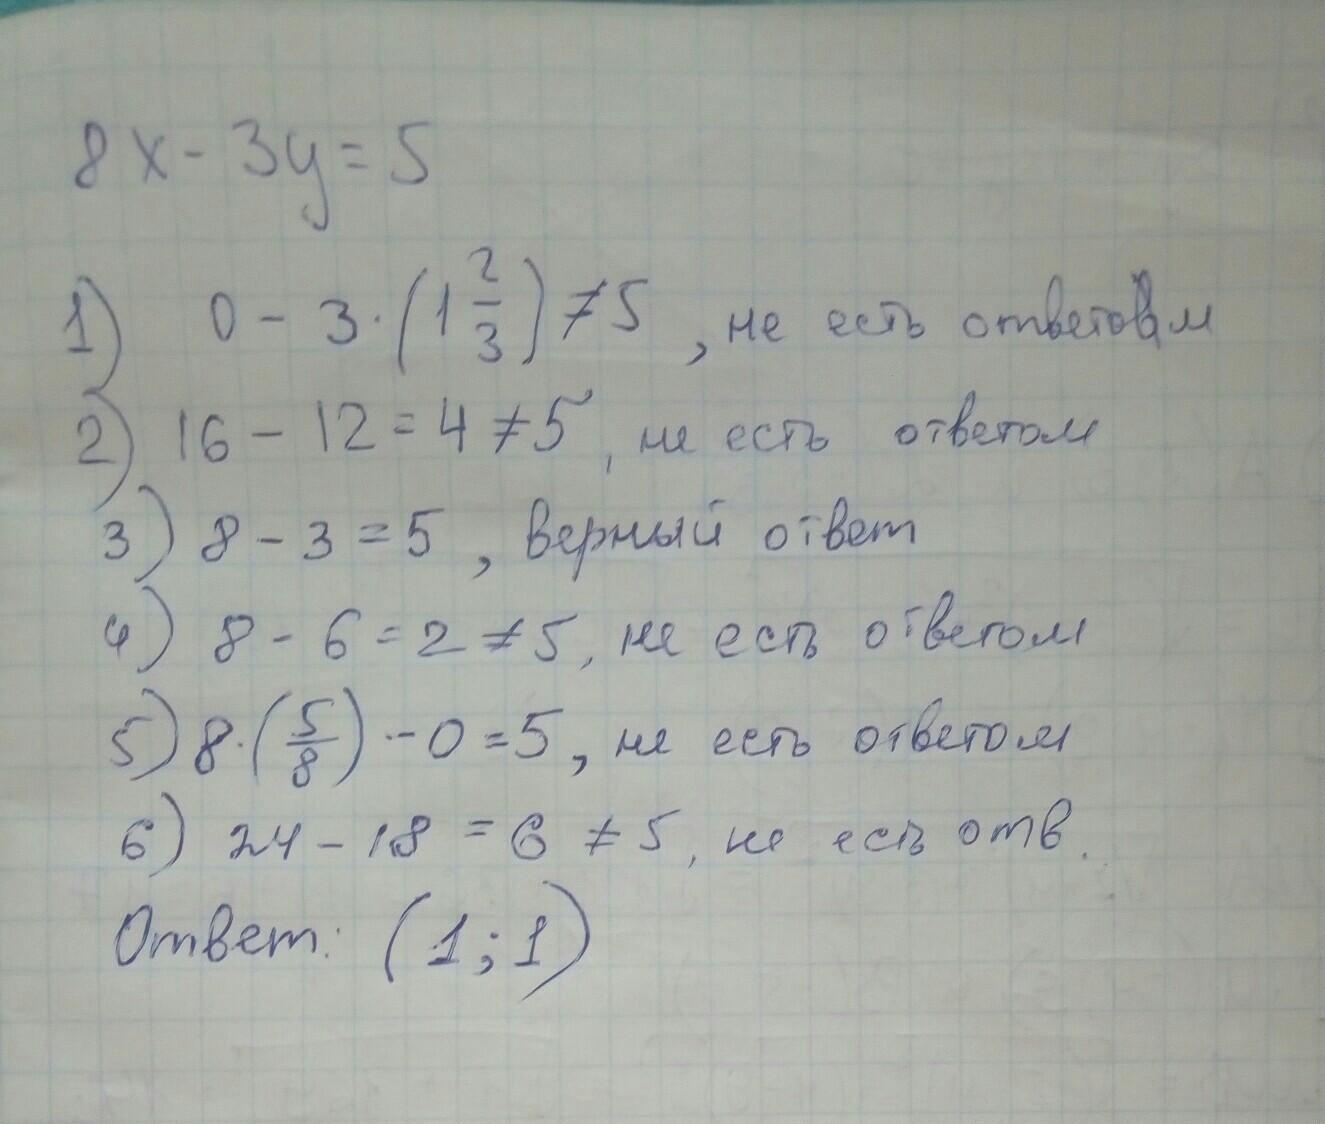 8x - 3y = 5
1) 0 - 3 · (1 2/3) ≠ 5, не есть ответом
2) 16 - 12 = 4 ≠ 5, не есть ответом
3) 8 - 3 = 5, верный ответ
4) 8 - 6 = 2 ≠ 5, не есть ответом
5) 8 · (5/8) - 0 = 5, не есть ответом
6) 24 - 18 = 6 ≠ 5, не есть отв.
Ответ: (1; 1)